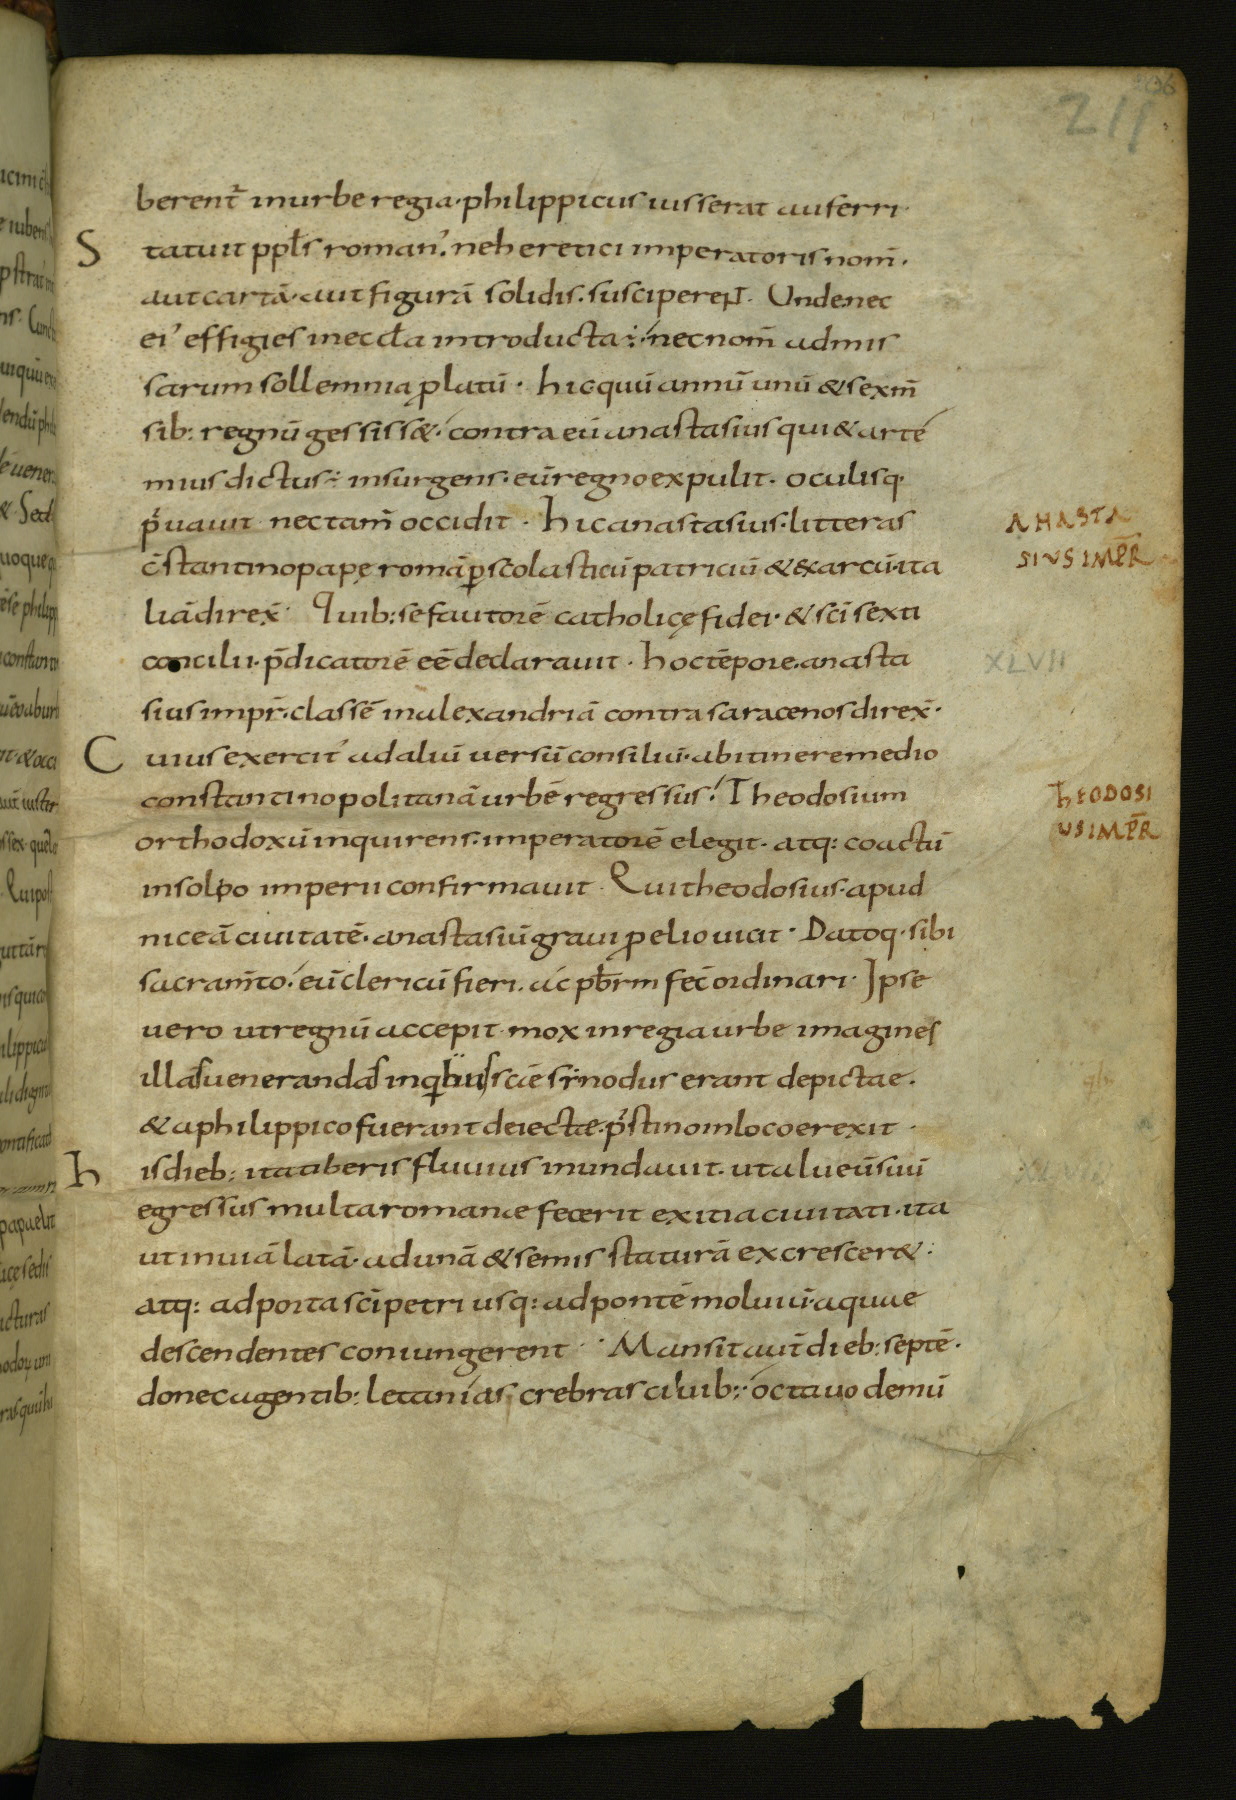 211
berent̄ in urbe regia · philippicus iusserat auferri ·
Statuit ppls̄ roman᾿. ne heretici imperatoris nom̄ ·
aut cartā · aut figurā solidis · susciperent · Unde nec
ei᾿ effigies in eccl̄a introducta ÷ nec nom̄ ad mis
sarum sollemnia ꝓlatū · hic quū annū unū & sex m̄
sib: regnū gessiss& · contra eū anastasius qui & arte
mius dictus ÷ insurgens · eū regno expulit · oculisq·
p̓uauit nec tam̄ occidit · Hic anastasius · litteras
c̄stantino papę romā ꝑ scolasticū patriciū & exarcū · ita
liā direx̄ · Quib: se fautorē catholicę fidei · & sc̄i sexti
concilii · p̄dicatorē eē declarauit · hoc tēpore · anasta
sius imp̄r · classē in alexandriā contra saracenos direx̄ ·
Cuius exercit᾿ ad aliū uersū consiliū · ab itinere medio
constantinopolitanā urbē regressus · Theodosium
orthodoxū inquirens · imperatorē elegit · atq: coactū
in solio imperii confirmauit · Qui theodosius · apud
niceā ciuitatē · anastasiū graui ꝓelio uicit · Datoq· sibi
sacram̄to · eū clericū fieri · ac pb̄rm fec̄ ordinari · Ipse
uero ut regnū accepit · mox in regia urbe imagines
illas uenerandas in quibus sc̄e sinodus erant depictae ·
& a philippico fuerant deiectae · p̓stino in loco erexit ·
His dieb: ita tiberis fluuius inundauit · ut alueū suū
egressus multa romanae fecerit exitia ciuitati · ita
ut in uiā latā · ad unā & semis staturā excrescer& ·
atq: ad porta sc̄i petri usq: ad pontē moluiū · aquae
descendentes coniungerent · Mansit aut̄ dieb: septē ·
donec agentib: letanias crebras ciuib: · octauo demū
ANASTA
SIUS IMP̄R
XLVII
THEODOSI
US IMP̄R